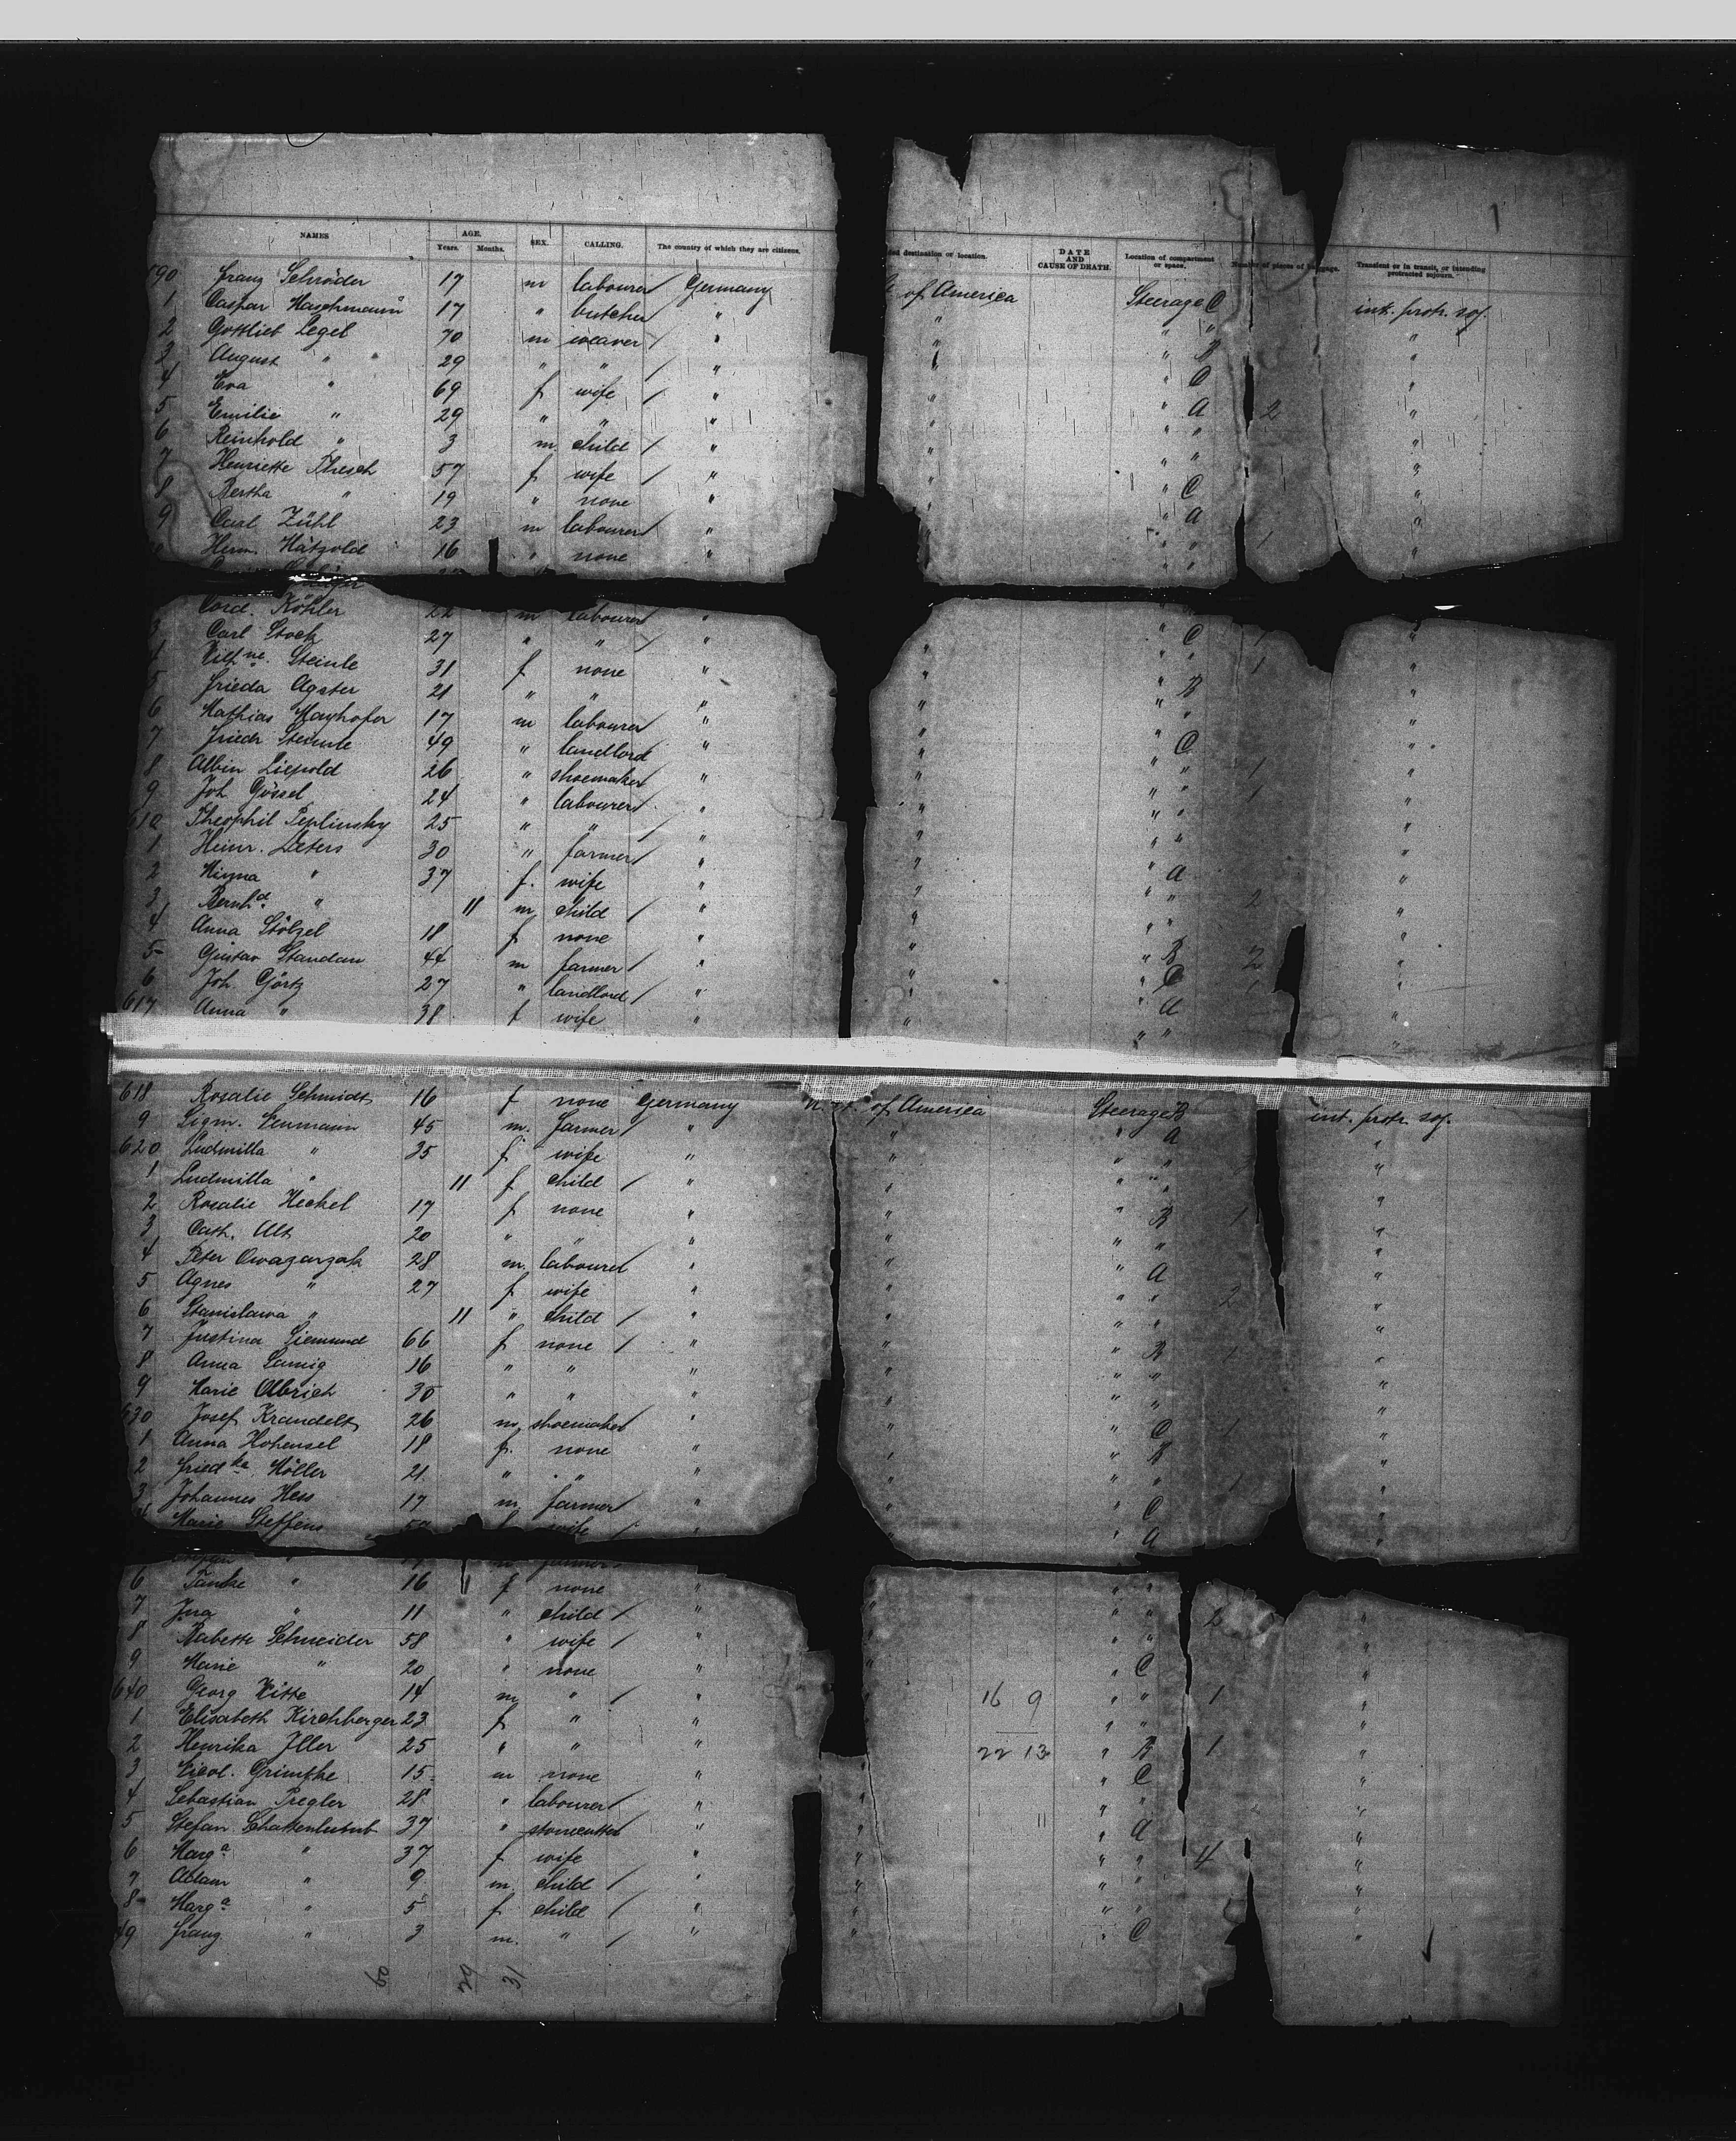 NAMES AGE. Years. Months. SEX. CALLING. The country of which they are citizens. destination or location. DATE AND CAUSE OF DEATH. Location of compartment or space. Number of pieces of baggage. Transient or in transit, or intending protracted sojourn.
1
590 Franz Schröder 17 m labourer / Germany of America Steerage C int. protr. soj.
1 Caspar Haschmann 17 " butcher / " " " " "
2 Gottlieb Legel 70 m weaver / " " " B "
3 August " 29 " " / " " " C "
4 Eva " 69 f wife / " " " A 2 "
5 Emilie " 29 " " " " " " "
6 Reinhold " 3 m child / " " " " "
7 Henriette Thesch 57 f wife / " " " C "
8 Bertha " 19 " none " " " A "
9 Carl Zühl 23 m labourer / " " " " 1 "
Herm. Hätzold 16 " none " " " "
Cord. Köhler 22 m labourer / "
3 Carl Stock 27 " " / " " " C 1 "
4 Wilh ne. Steinle 31 f none " " " " 1 "
5 Frieda Agster 21 " " " " " B "
6 Mathias Mayhofer 17 m labourer / " " " " "
7 Friedr Steinle 49 " landlord " " " C "
8 Albin Liepold 26 " shoemaker / " " " " 1 "
9 Joh. Gössel 24 " labourer / " " " " 1 "
610 Theophil Peplinsky 25 " " / " " " " "
1 Heinr. Peters 30 " farmer / " " " A "
2 Minna " 37 f. wife " " " " 2 "
3 Bernh d. " 11 m child / " " " " "
4 Anna Stölzel 18 f none " " " B 2 "
5 Gustav Standau 44 m farmer / " " " C "
6 Joh. Görtz 27 " landlord / " " " A "
617 Anna " 38 f wife " " " " "
618 Rosalie Schmidt 16 f none Germany of America Steerage B int. protr. soj.
9 Sigm. Neumann 45 m. farmer / " " " A "
620 Ludmilla " 35 f wife " " " " "
1 Ludmilla " 11 f child / " " " " "
2 Rosalie Heckel 17 f none " " " B 1 "
3 Cath. Ult 20 " " " " " " "
4 Peter Owazarzak 28 m. labourer " " " A "
5 Agnes " 27 f wife " " " " 2 "
6 Stanislawa " 11 " child / " " " " "
7 Justina Siemund 66 f none / " " " B 1 "
8 Anna Lamig 16 " " " " " " "
9 Marie Olbrich 30 " " " " " " "
630 Josef Krandelt 26 m shoemaker / " " " C 1 "
1 Anna Hohensel 18 f. none " " " B "
2 Fried ka. Möller 21 " " " " " " 1 "
3 Johannes Hess 17 m. farmer / " " " C "
4 Marie Steffens f wife / " " " A "
m farmer
6 Tomke " 16 f none " " " " "
7 Ina " 11 " child / " " " " 2 "
8 Babette Schneider 58 " wife / " " " " "
9 Marie " 20 " none " " " C "
640 Georg Witte 14 m " / " 16 9 " " 1 "
1 Elisabeth Kirchberger 23 f " " " " "
2 Henrika Iller 25 " " " 22 13 " B 1 "
3 Nicol. Grimpke 15 m none " " C "
4 Sebastian Pregler 28 " labourer / " " " " "
5 Stefan 37 " stonecutter " " 11 " A "
6 Marg a " 37 f wife " " " " 4 "
7 Adam " 9 m. child / " " " " "
8 Marg a " 5 f child / " " " " "
49 Franz " 3 m. " / " " " C "
60 29 31